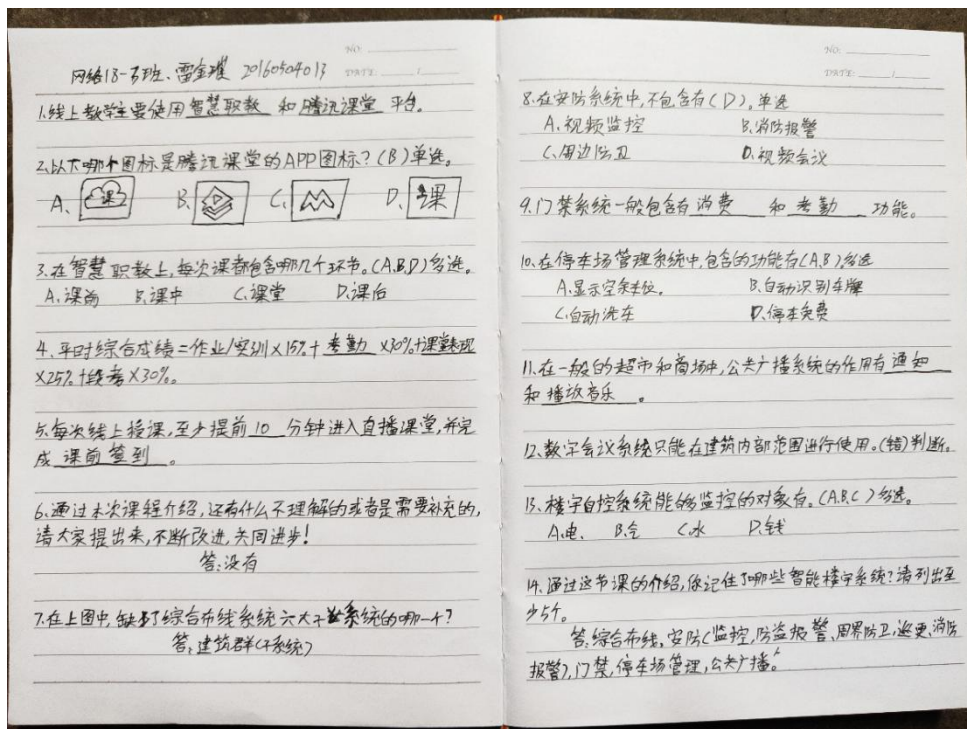 NO:
DATE: / /
网络18-5班、雷金璀 20160504013
1.线上教学主要使用智慧职教 和腾讯课堂 平台。
2.以下哪个图标是腾讯课堂的APP图标?(B)单选。
A、课 B、 C、 D、课
3.在智慧职教上,每次课都包含哪几个环节。(A.B.D)多选。
A、课前 B、课中 C、课堂 D、课后
4、平时综合成绩=作业/实训×15%+考勤 ×30%+课堂表现
×25%+段考×30%。
5、每次线上授课,至少提前10 分钟进入直播课堂,并完
成 课前签到 。
6、通过本次课程介绍,还有什么不理解的或者是需要补充的,
请大家提出来,不断改进,共同进步!
答:没有
7.在上图中,缺了综合布线系统六大子系统的哪一个?
答:建筑群(子系统)
NO:
DATE: / /
8.在安防系统中,不包含有(D)。单选
A、视频监控 B、消防报警
C、周边防卫 D、视频会议
9.门禁系统一般包含有消费 和考勤 功能。
10、在停车场管理系统中,包含的功能有(A.B)多选
A、显示空余车位。 B、自动识别车牌
C、自动洗车 D、停车免费
11、在一般的超市和商场中,公共广播系统的作用有通知
和 播放音乐 。
12、数字会议系统只能在建筑内部范围进行使用。(错)判断。
13、楼宇自控系统能够监控的对象有。(A.B.C)多选。
A、电、 B、气 C、水 D、钱
14、通过这节课的介绍,你记住了哪些智能楼宇系统?请列出至
少5个。
答:综合布线,安防(监控,防盗报警、周界防卫,巡更,消防
报警),门禁,停车场管理,公共广播。